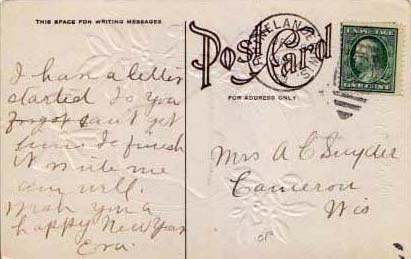 THIS SPACE FOR WRITING MESSAGES
Post Card
FOR ADDRESS ONLY
I have a letter
started to you
cant get
time to finish
it write me
am well.
Wish you a
happy New Year
Era.
Mrs A C Snyder
Cameron
Wis